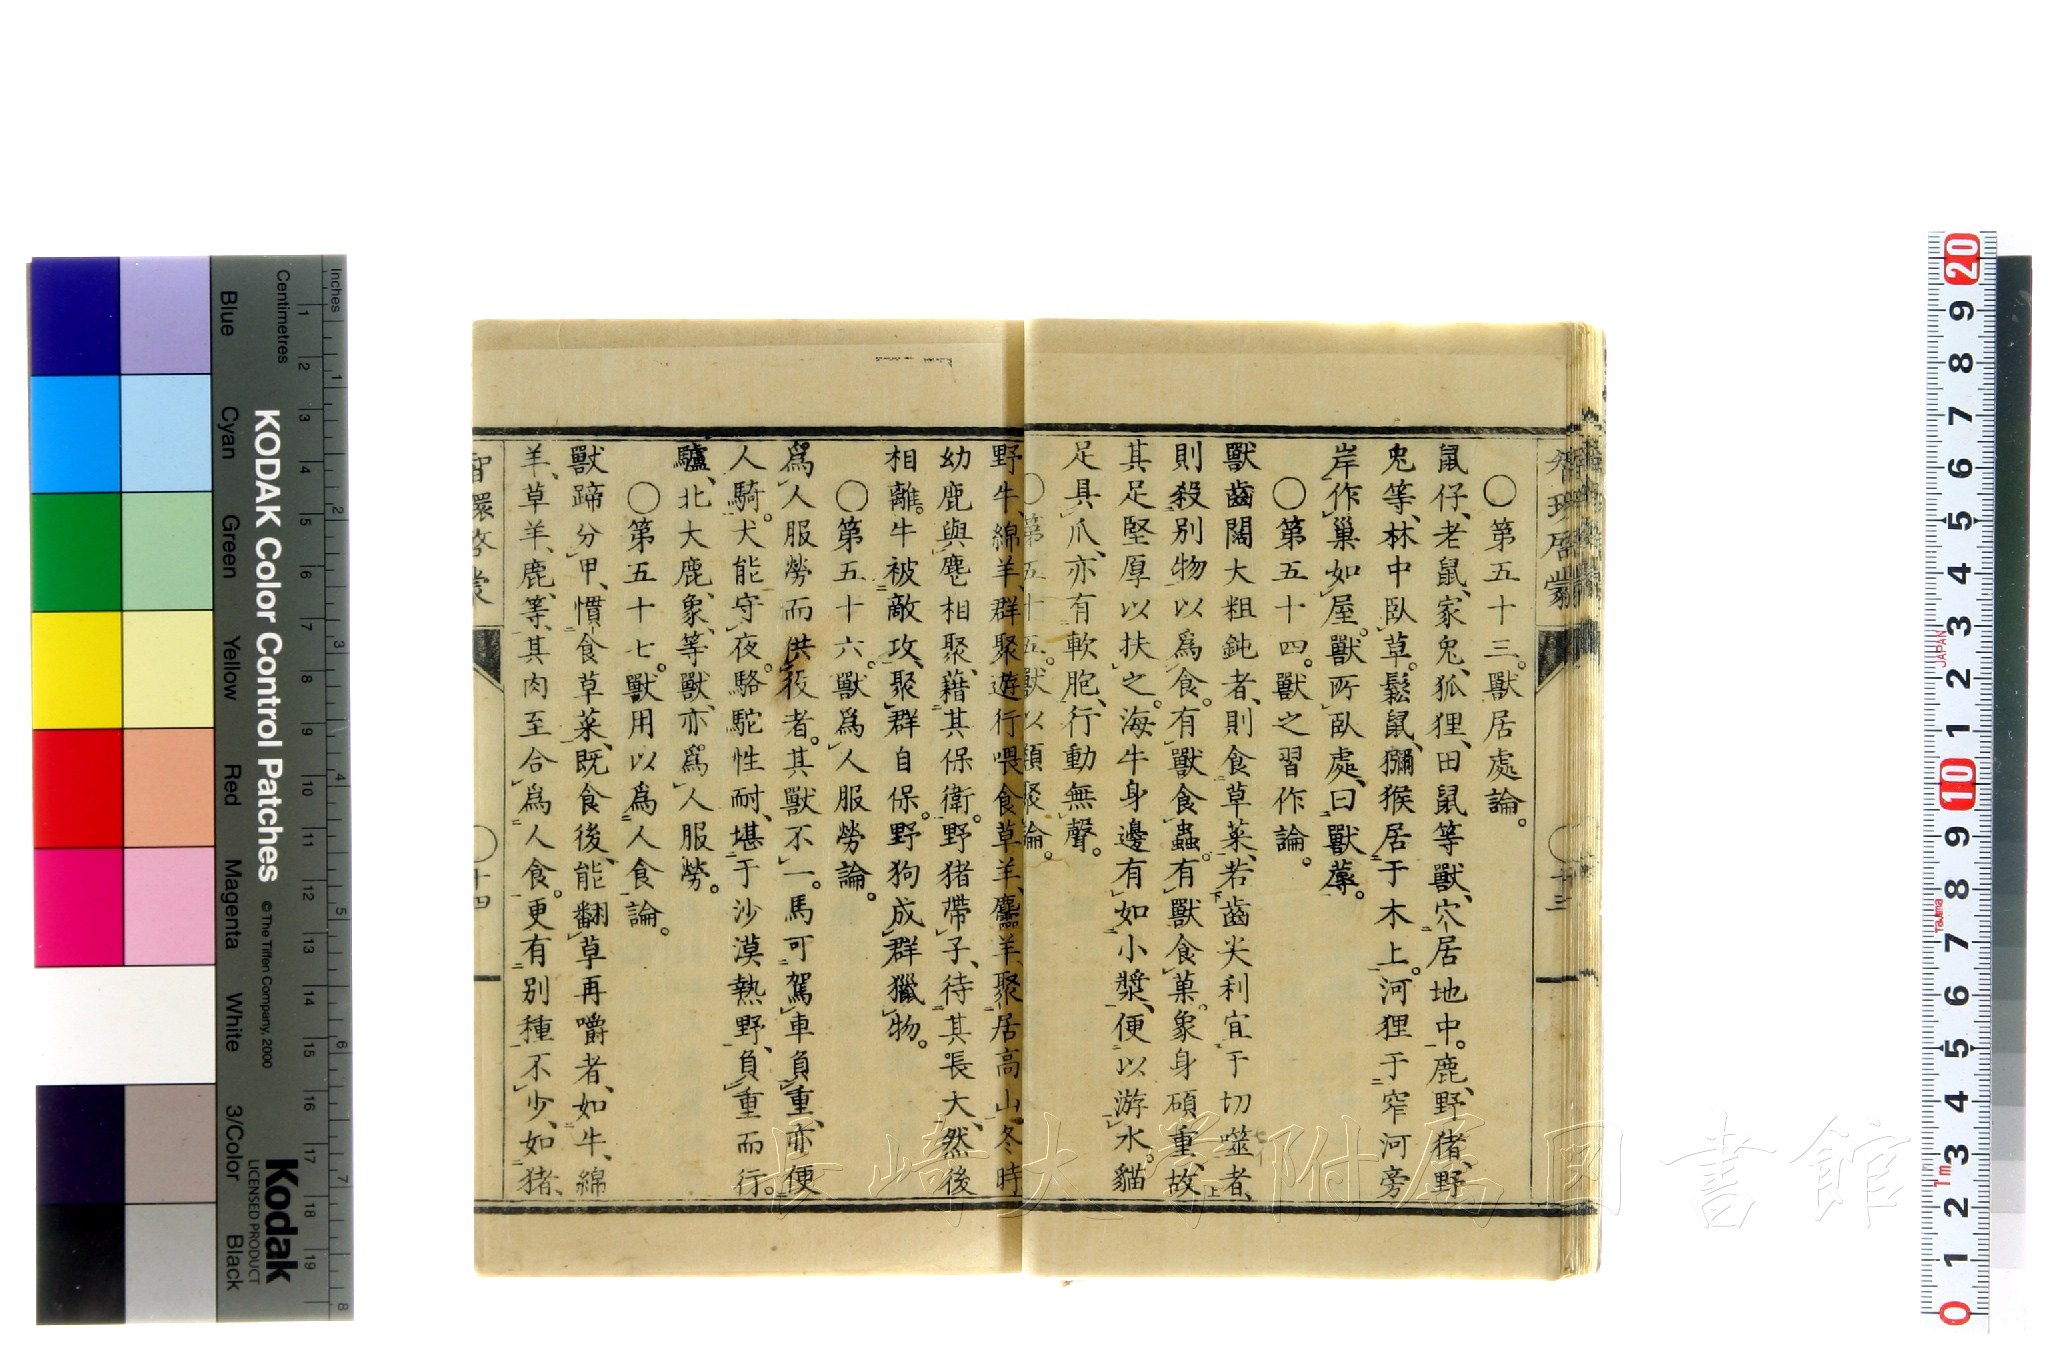 智環啓蒙
十三
〇第五十三。獸居處論。
鼠仔、老鼠、家兔、狐狸、田鼠等獸、穴居地中。鹿、野猪、野
兔等、林中臥草。鬆鼠、獼猴居于木上。河狸于窄河旁
岸作巢如屋。獸所臥處、曰獸蓐。
〇第五十四。獸之習作論。
獸齒闊大粗鈍者、則食草菜、若齒尖利宜于切噬者、
則殺別物以爲食。有獸食蟲。有獸食菓。象身碩重、故
其足堅厚以扶之。海牛身邊有如小槳、便以游水。貓
足具爪、亦有軟胞、行動無聲。
〇第五十五。獸以類聚論。
野牛、綿羊、群聚遊行喂食草羊、麢羊、聚居高山。冬時
幼鹿與麀相聚、藉其保衛。野猪帶子、待其長大、然後
相離。牛被敵攻、聚群自保。野狗成群獵物。
〇第五十六。獸爲人服勞論。
爲人服勞而供役者。其獸不一。馬可駕車負重、亦便
人騎。犬能守夜。駱駝性耐、堪于沙漠熱野、負重而行。
驢、北大鹿、象、等獸、亦爲人服勞。
〇第五十七。獸用以爲人食論。
獸蹄分甲、慣食草菜、既食後、能翻草再嚼者、如牛、綿
羊、草羊、鹿、等、其肉至合爲人食。更有別種不少、如猪、
智環啓蒙
〇十四
長崎大学附属図書館
KODAK Color Control Patches
© The Tiffen Company, 2000
Kodak
LICENSED PRODUCT
Inches
Centimetres
Blue Cyan Green Yellow Red Magenta White 3/Color Black
1 2 3 4 5 6 7 8 9 10 11 12 13 14 15 16 17 18 19
1 2 3 4 5 6 7 8
20 9 8 7 6 5 4 3 2 1 10 9 8 7 6 5 4 3 2 1 0
JAPAN
Tajima
1m